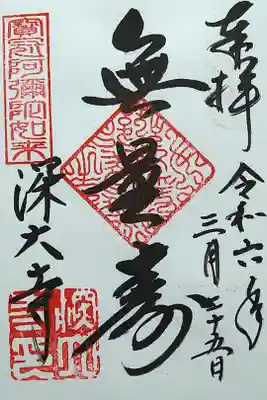 奉拝
令和六年
三月二十五日
無量寿
寶冠阿彌陀如来
深大寺